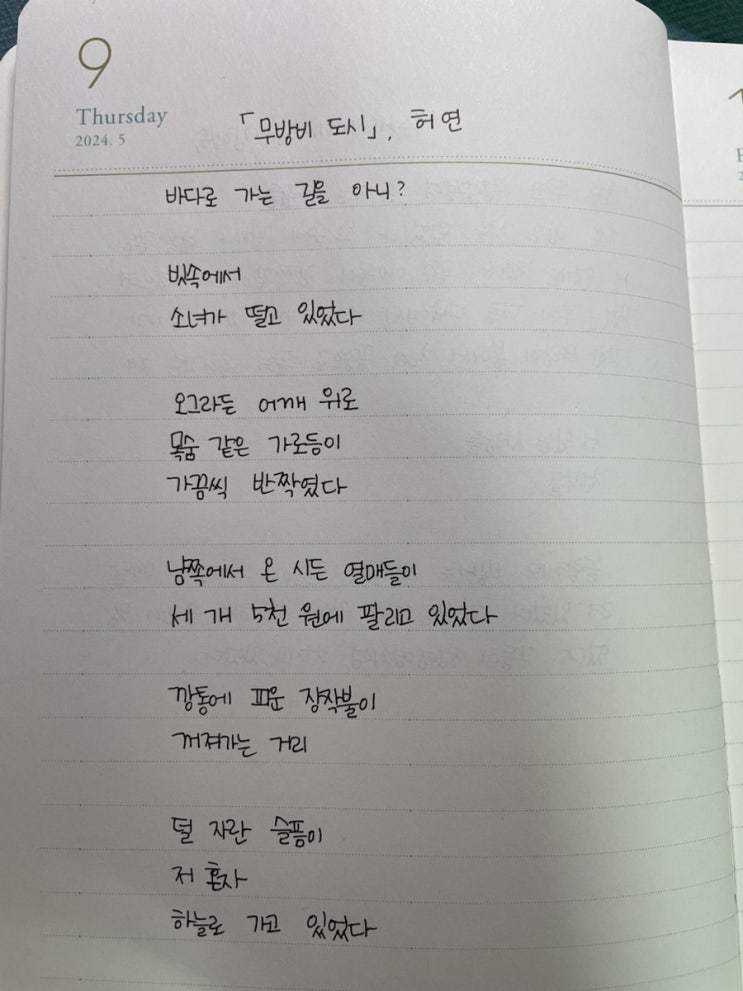 9
Thursday
2024. 5
「무방비 도시」, 허연
바다로 가는 길을 아니?
빗속에서
소녀가 떨고 있었다
오그라든 어깨 위로
목숨 같은 가로등이
가끔씩 반짝였다
남쪽에서 온 시든 열매들이
세 개 5천 원에 팔리고 있었다
깡통에 피운 장작불이
꺼져가는 거리
덜 자란 슬픔이
저 혼자
하늘로 가고 있었다